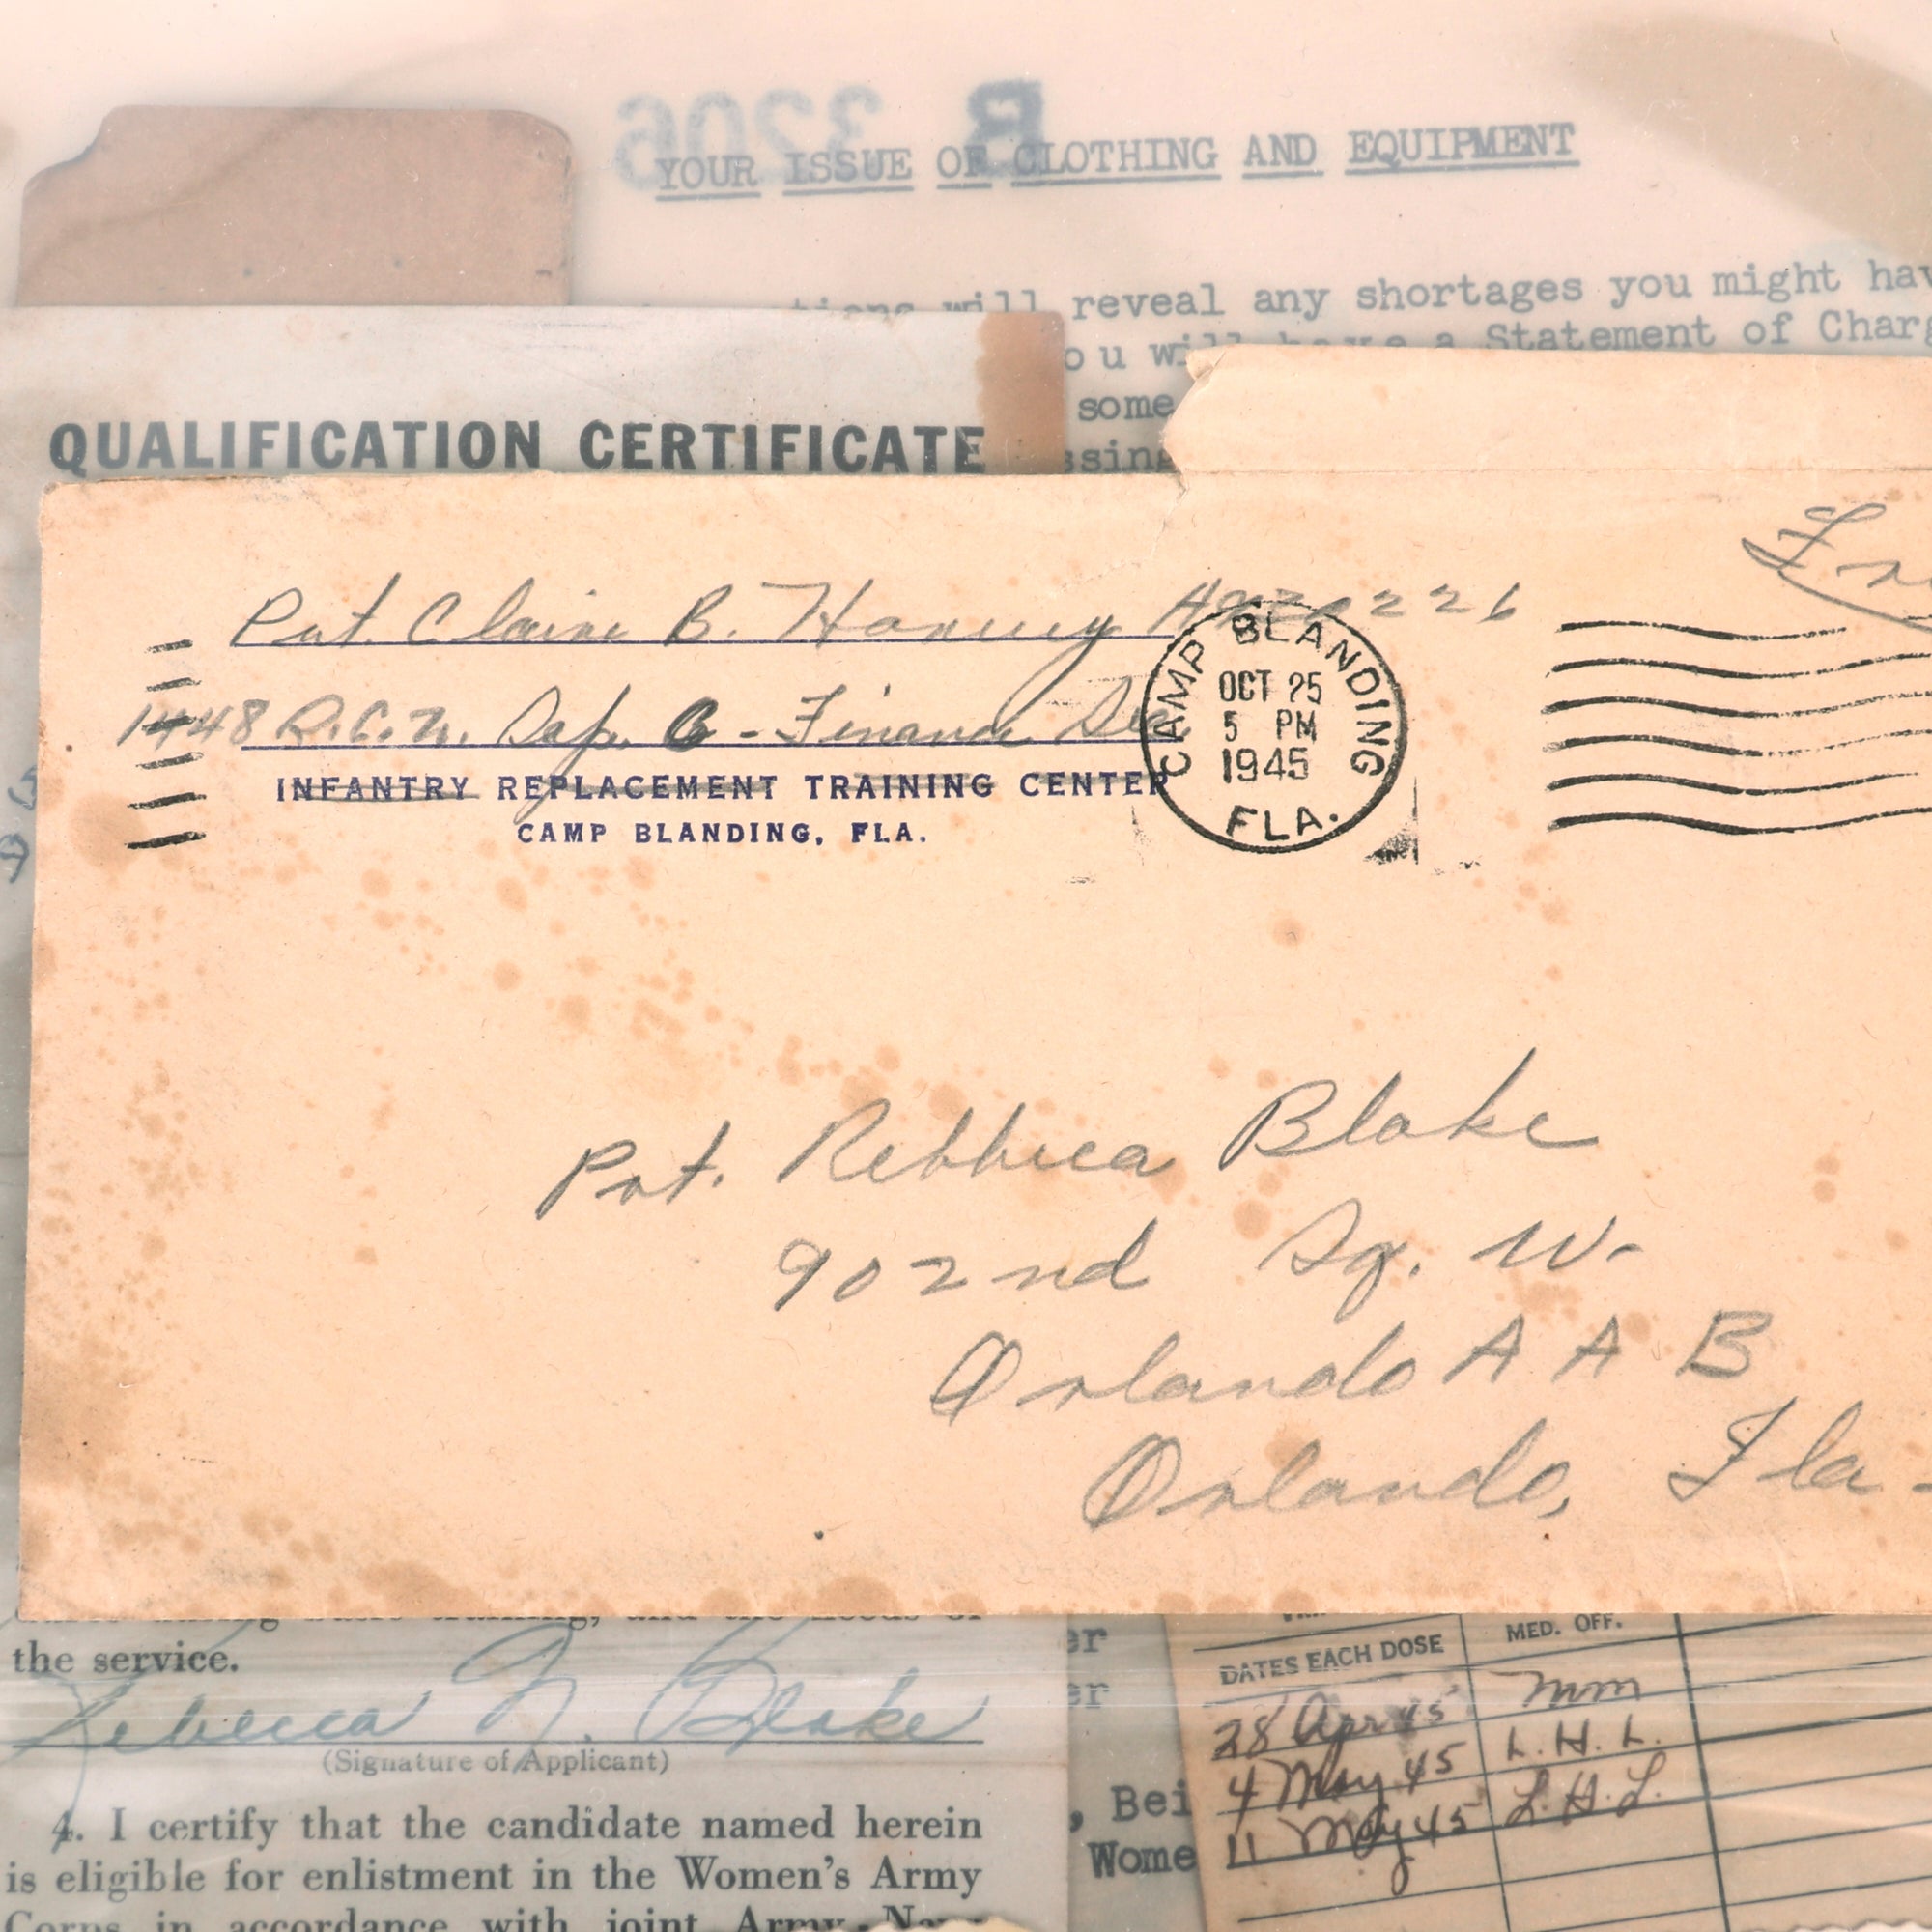 B 3206
YOUR ISSUE OF CLOTHING AND EQUIPMENT
will reveal any shortages you might hav
ou will have a Statement of Charg
some
ssing
QUALIFICATION CERTIFICATE
Pvt. Claire B.
1448 Finance
INFANTRY REPLACEMENT TRAINING CENTER
CAMP BLANDING, FLA.
CAMP BLANDING
OCT 25
5 PM
1945
FLA.
Pvt. Rebbeca Blake
902nd Sq. W-
Orlando A A B
Orlando, Fla-
the service.
Rebecca N. Blake
(Signature of Applicant)
4. I certify that the candidate named herein
is eligible for enlistment in the Women's Army
Corps in accordance with joint Army-Navy
er
er
, Bei
Wome
DATES EACH DOSE MED. OFF.
28 Apr 45 mm
4 May 45 L.H.L.
11 May 45 L.H.L.